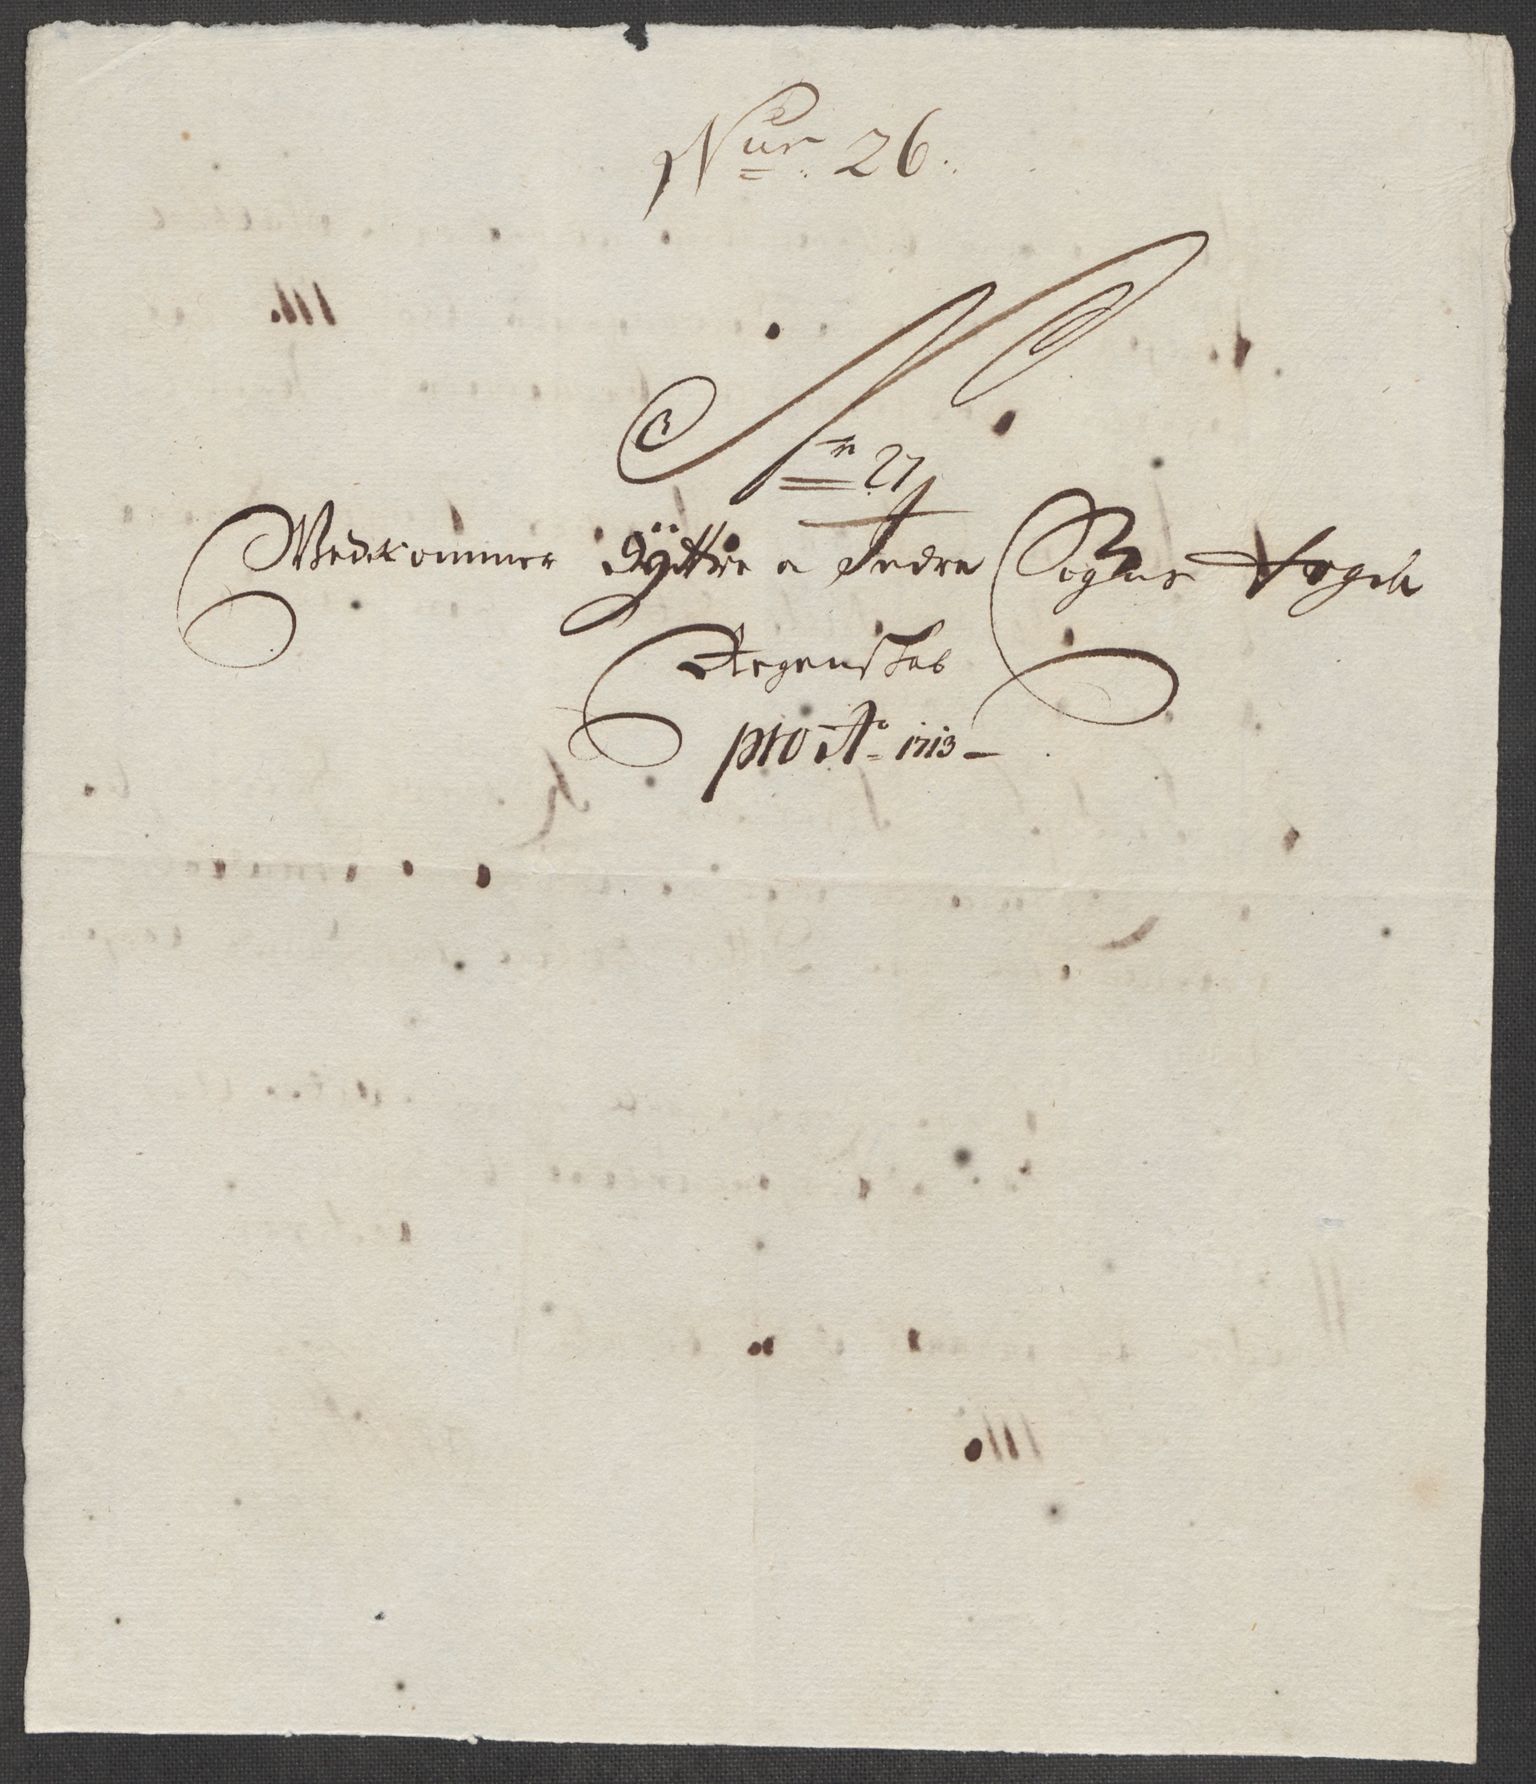 Nur. 26.
N
n 27
Vedkommer Ÿttre a Indre Sogns Fogde
Regenskab
pro Ao 1713